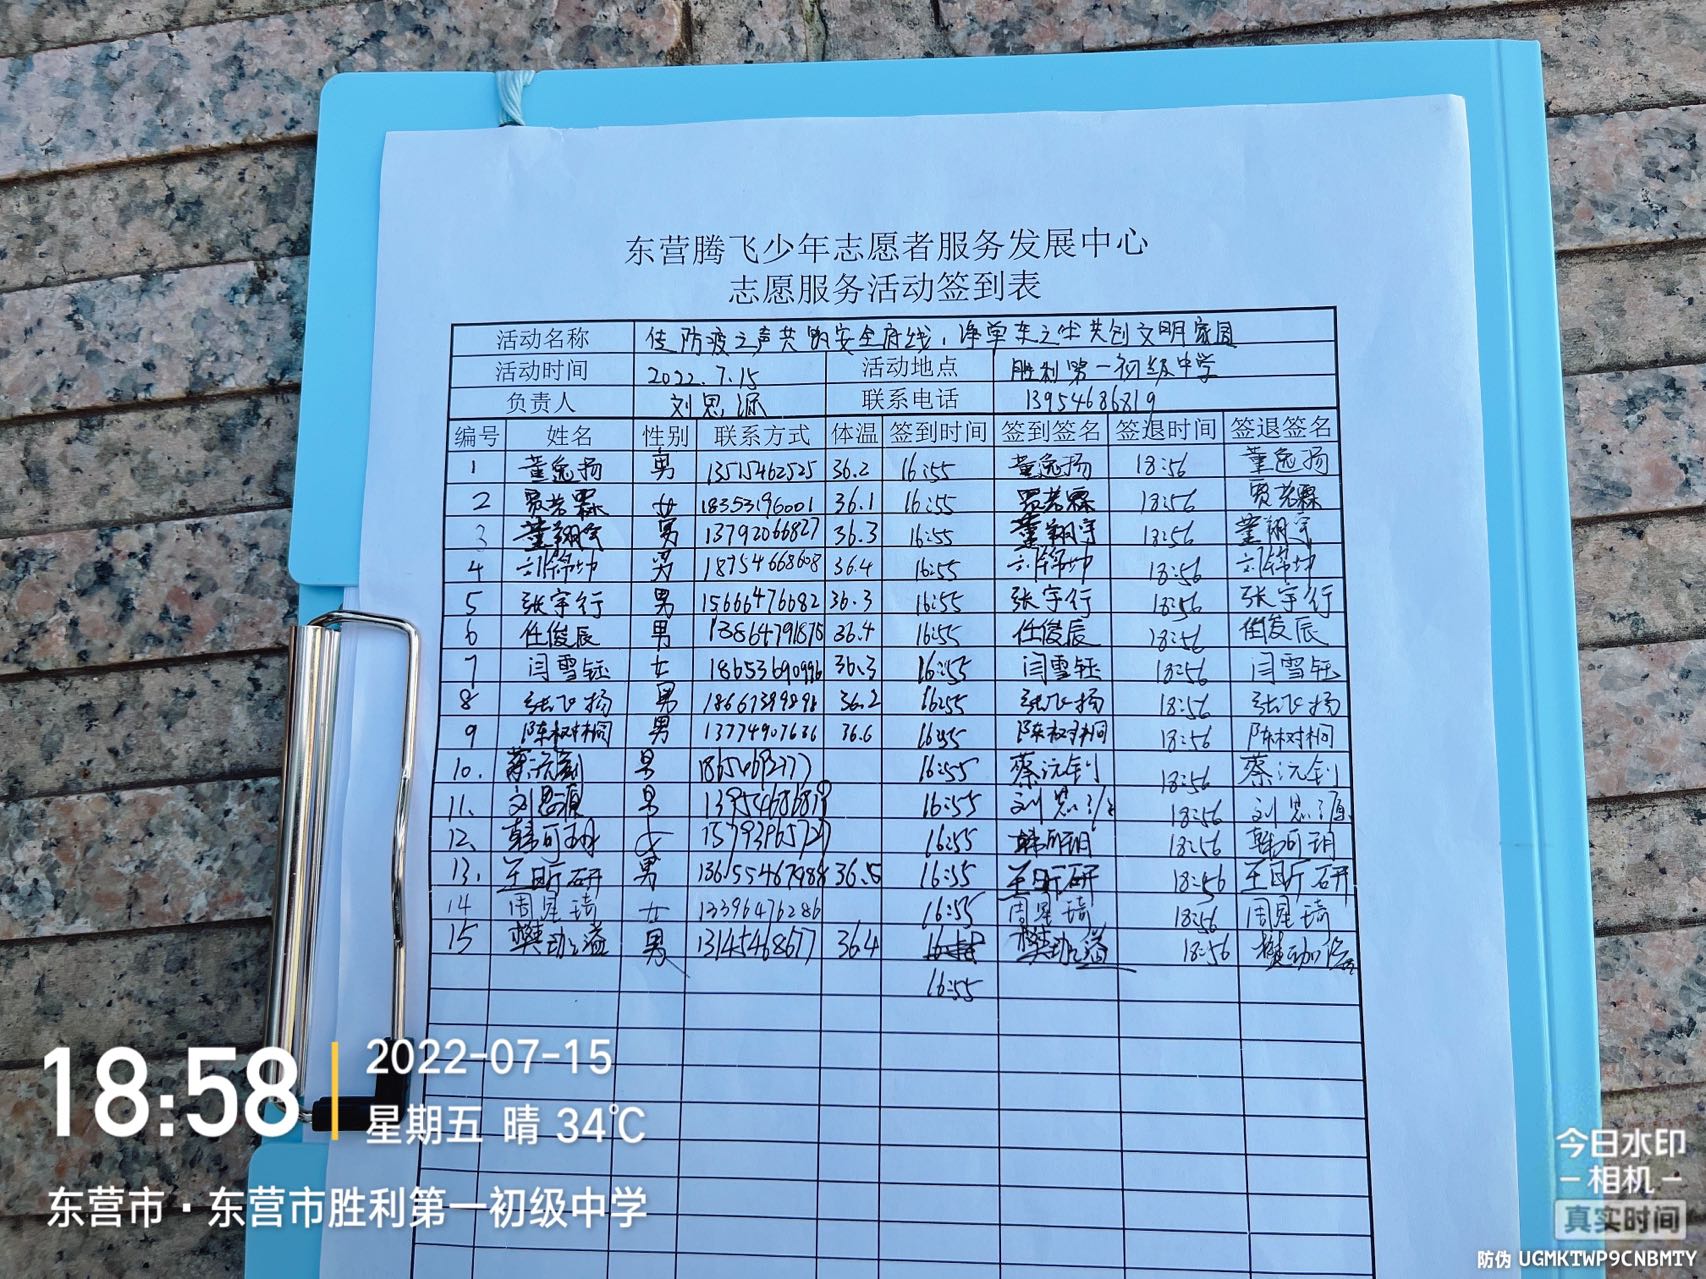 东营腾飞少年志愿者服务发展中心
志愿服务活动签到表
活动名称 传防疫之声共 安全防线,净单车之尘共创文明家园
活动时间 2022.7.15 活动地点 胜利第一初级中学
负责人 刘思源 联系电话 13954686819
编号 姓名 性别 联系方式 体温 签到时间 签到签名 签退时间 签退签名
1 董逸扬 男 13515462525 36.2 16:55 董逸扬 18:56 董逸扬
2 贾若霖 女 18353196001 36.1 16:55 贾若霖 18:56 贾若霖
3 董翔宇 男 13792066827 36.3 16:55 董翔宇 18:56 董翔宇
4 刘锦坤 男 18754668608 36.4 16:55 刘锦坤 18:56 刘锦坤
5 张宇行 男 15666476682 36.3 16:55 张宇行 18:56 张宇行
6 任俊辰 男 13864791875 36.4 16:55 任俊辰 18:56 任俊辰
7 闫雪钰 女 18653690996 36.3 16:55 闫雪钰 18:56 闫雪钰
8 张飞扬 男 18667389898 36.2 16:55 张飞扬 18:56 张飞扬
9 陈树桐 男 13774907636 36.6 16:55 陈树桐 18:56 陈树桐
10. 蔡沅钊 男 16:55 蔡沅钊 18:56 蔡沅钊
11. 刘思源 男 13954686819 16:55 刘思源 18:56 刘思源
12. 韩可玥 女 16:55 韩可玥 18:56 韩可玥
13. 王昕研 男 36.5 16:55 王昕研 18:56 王昕研
14 周星琦 女 13396476286 16:55 周星琦 18:56 周星琦
15 樊劭溢 男 13145468677 36.4 樊劭溢 18:56 樊劭溢
16:55
18:58
2022-07-15
星期五 晴 34℃
东营市·东营市胜利第一初级中学
今日水印
-相机-
真实时间
防伪 UGMKTWP9CNBMTY